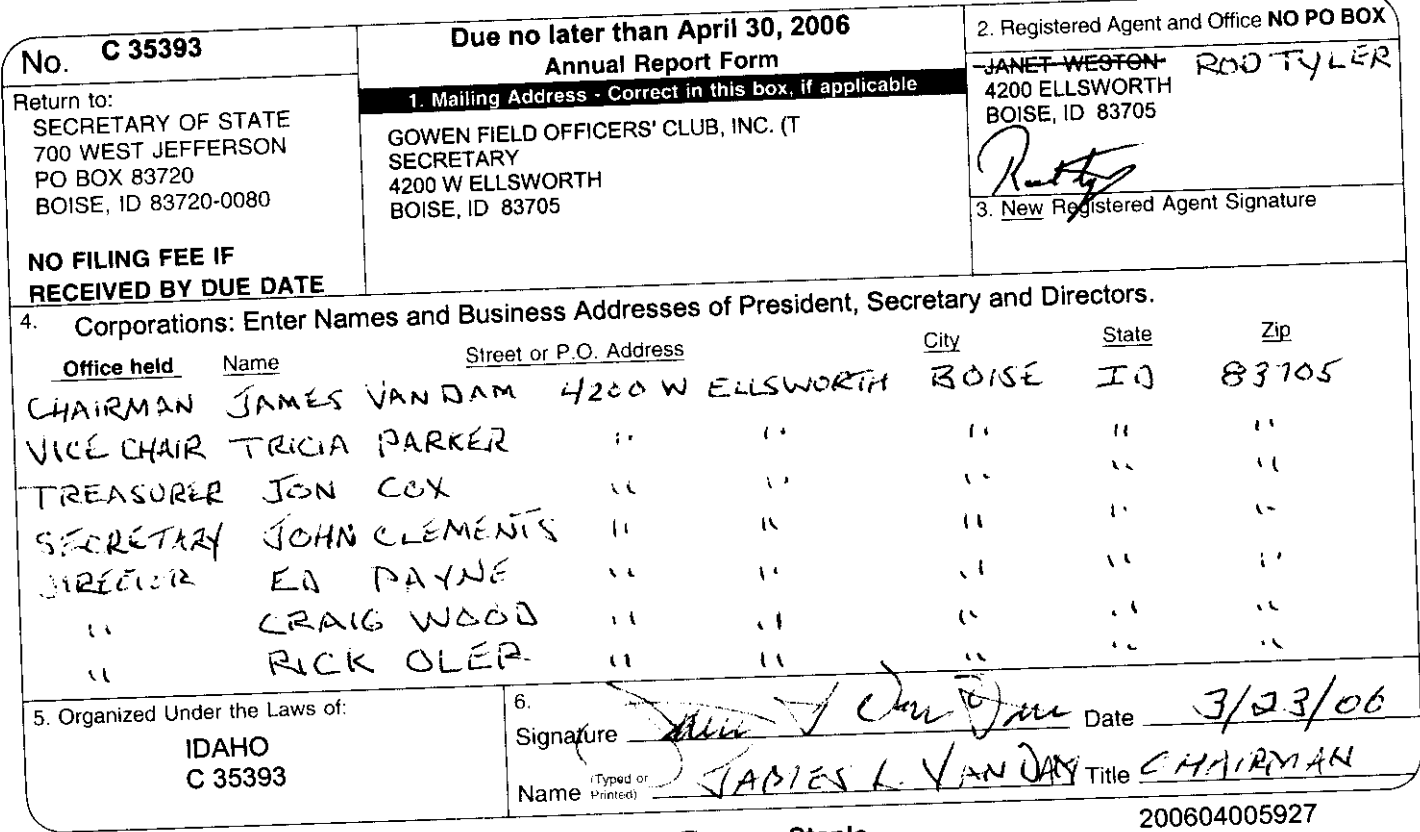 No. C 35393
Return to:
SECRETARY OF STATE
700 WEST JEFFERSON
PO BOX 83720
BOISE, ID 83720-0080
NO FILING FEE IF
RECEIVED BY DUE DATE
Due no later than April 30, 2006
Annual Report Form
1. Mailing Address - Correct in this box, if applicable
GOWEN FIELD OFFICERS' CLUB, INC. (T
SECRETARY
4200 W ELLSWORTH
BOISE, ID 83705
2. Registered Agent and Office NO PO BOX
JANET WESTON ROD TYLER
4200 ELLSWORTH
BOISE, ID 83705
3. New Registered Agent Signature
4. Corporations: Enter Names and Business Addresses of President, Secretary and Directors.
Office held Name Street or P.O. Address City State Zip
CHAIRMAN JAMES VAN DAM 4200 W ELLSWORTH BOISE ID 83705
VICE CHAIR TRICIA PARKER " " " " "
TREASURER JON COX " " " " "
SECRETARY JOHN CLEMENTS " " " " "
DIRECTOR ED PAYNE " " " " "
" CRAIG WOOD " " " " "
" RICK OLER " " " " "
5. Organized Under the Laws of:
IDAHO
C 35393
6.
Signature Date 3/23/06
Name (Typed or Printed) JAMES L. VAN DAM Title CHAIRMAN
200604005927